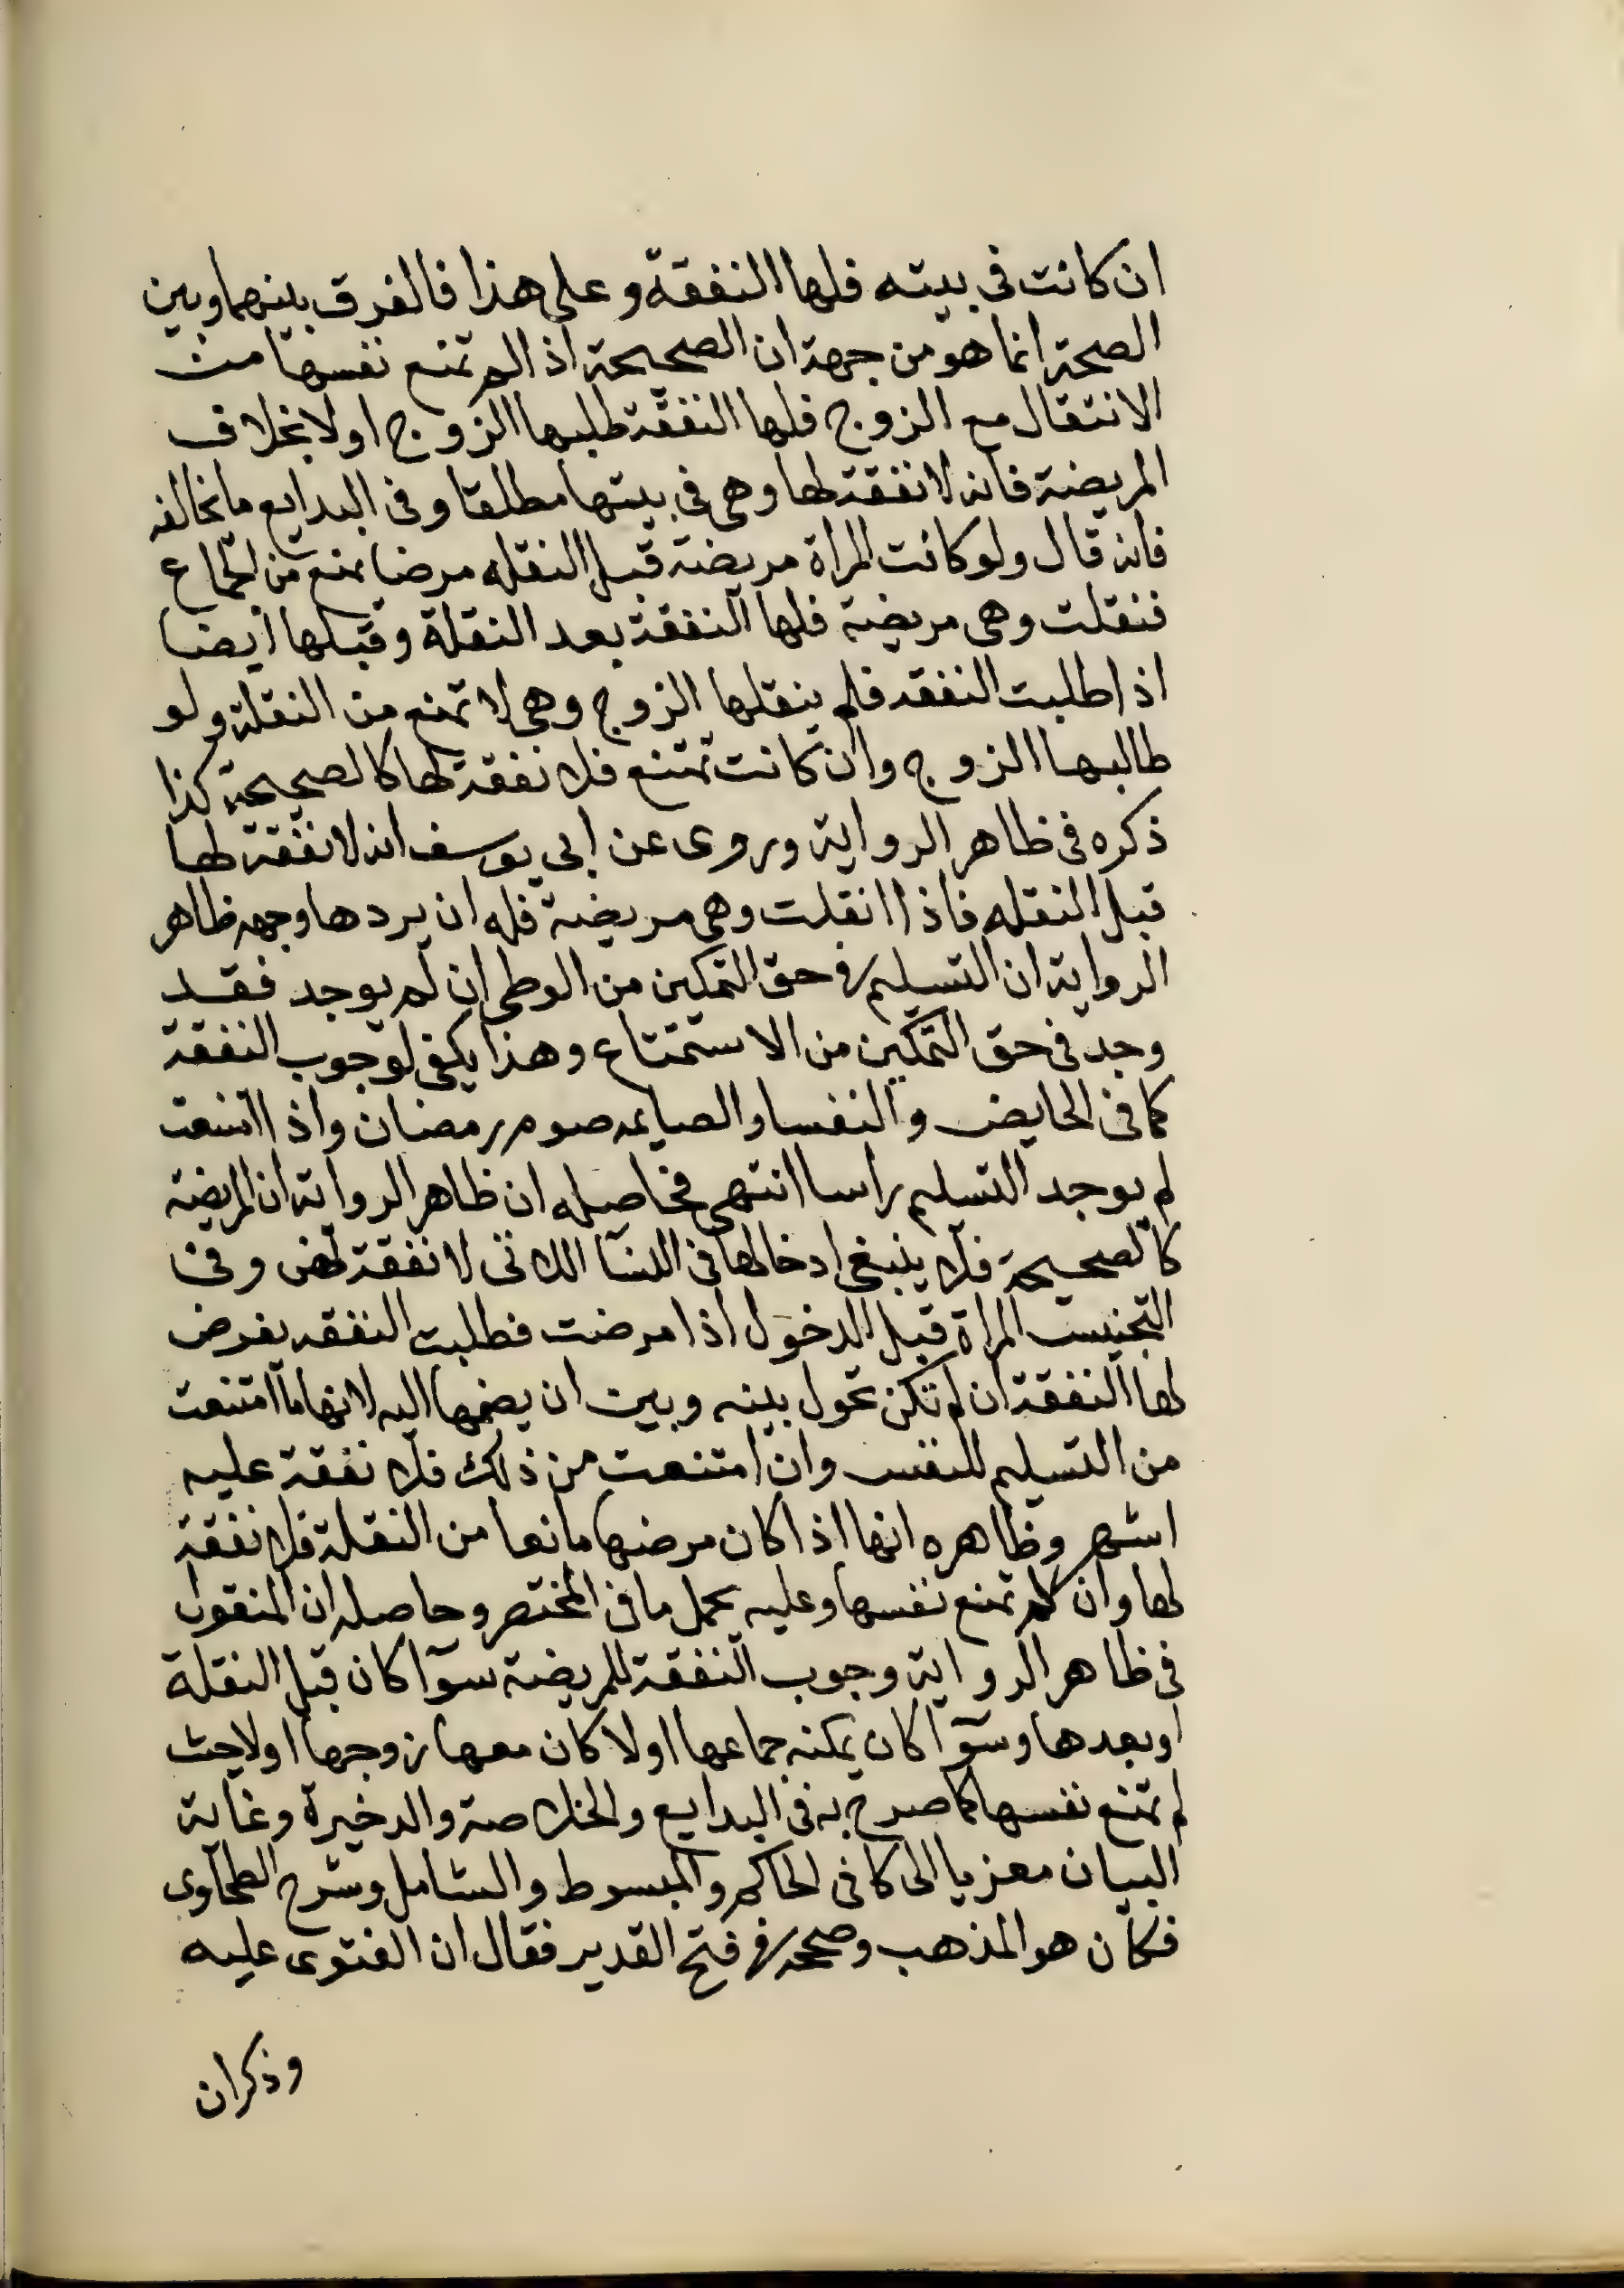 ان كانت فى بيته فلها النفقة وعلى هذا فالفرق بينهما وبين
الصحة انما هو من جهة ان الصحيحة اذا لم تمنع نفسها من
الانتقال مع الزوج فلها النفقة طلبها الزوج اولا بخلاف
المريضة فانه لا نفقة لها وهى فى بيتها مطلقا وفى البدايع ما يخالفه
فانه قال ولو كانت المراة مريضة قبل النقله مرضا يمنع من الجماع
فنقلت وهى مريضة فلها النفقة بعد النقلة وقبلها ايضا
اذا طلبت النفقه فلم ينقلها الزوج وهى لا تمنع من النقلة ولو
طالبها الزوج وان كانت تمتنع فلا نفقة لها كالصحيحة كذا
ذكره فى ظاهر الرواية وروى عن ابى يوسف انه لا نفقة لها
قبل النقله فاذا انقلت وهى مريضة فله ان يردها وجه ظاهر
الرواية ان التسليم فى حق التمكين من الوطى ان لم يوجد فقد
وجد فى حق التمكين من الاستمتاع وهذا يكفى لوجوب النفقة
كما فى الحايض والنفسا والصايمه صوم رمضان واذا امتنعت
لم يوجد التسليم راسا انتهى فحاصله ان ظاهر الرواية ان المريضة
كالصحيحة فلا ينبغى ادخالها فى النسآ اللاتى لا نفقة لهن وفى
التجنيس المراة قبل الدخول اذا مرضت فطلبت النفقه يفرض
لها النفقة ان لم تكن تحول بينه وبين ان يضمها اليه لانها ما امتنعت
من التسليم للنفس وان امتنعت من ذلك فلا نفقة عليه
انتهى وظاهره انها اذا كان مرضها مانعا من النقلة فلا نفقة
لها وان لم تمنع نفسها وعليه يحمل ما فى المختصر وحاصله ان المنقول
فى ظاهر الرواية وجوب النفقة للمريضة سوآ كان قبل النقلة
او بعدها وسوآ كان يمكنه جماعها اولا كان معها زوجها اولا حيث
لم تمنع نفسها كما صرح به فى البدايع والخلاصة والدخيرة وغاية
البيان معزيا الى كافى الحاكم والمبسوط والشامل وشرح الطحاوى
فكان هو المذهب وصححه فى فتح القدير فقال ان الفتوى عليه
وذكر ان